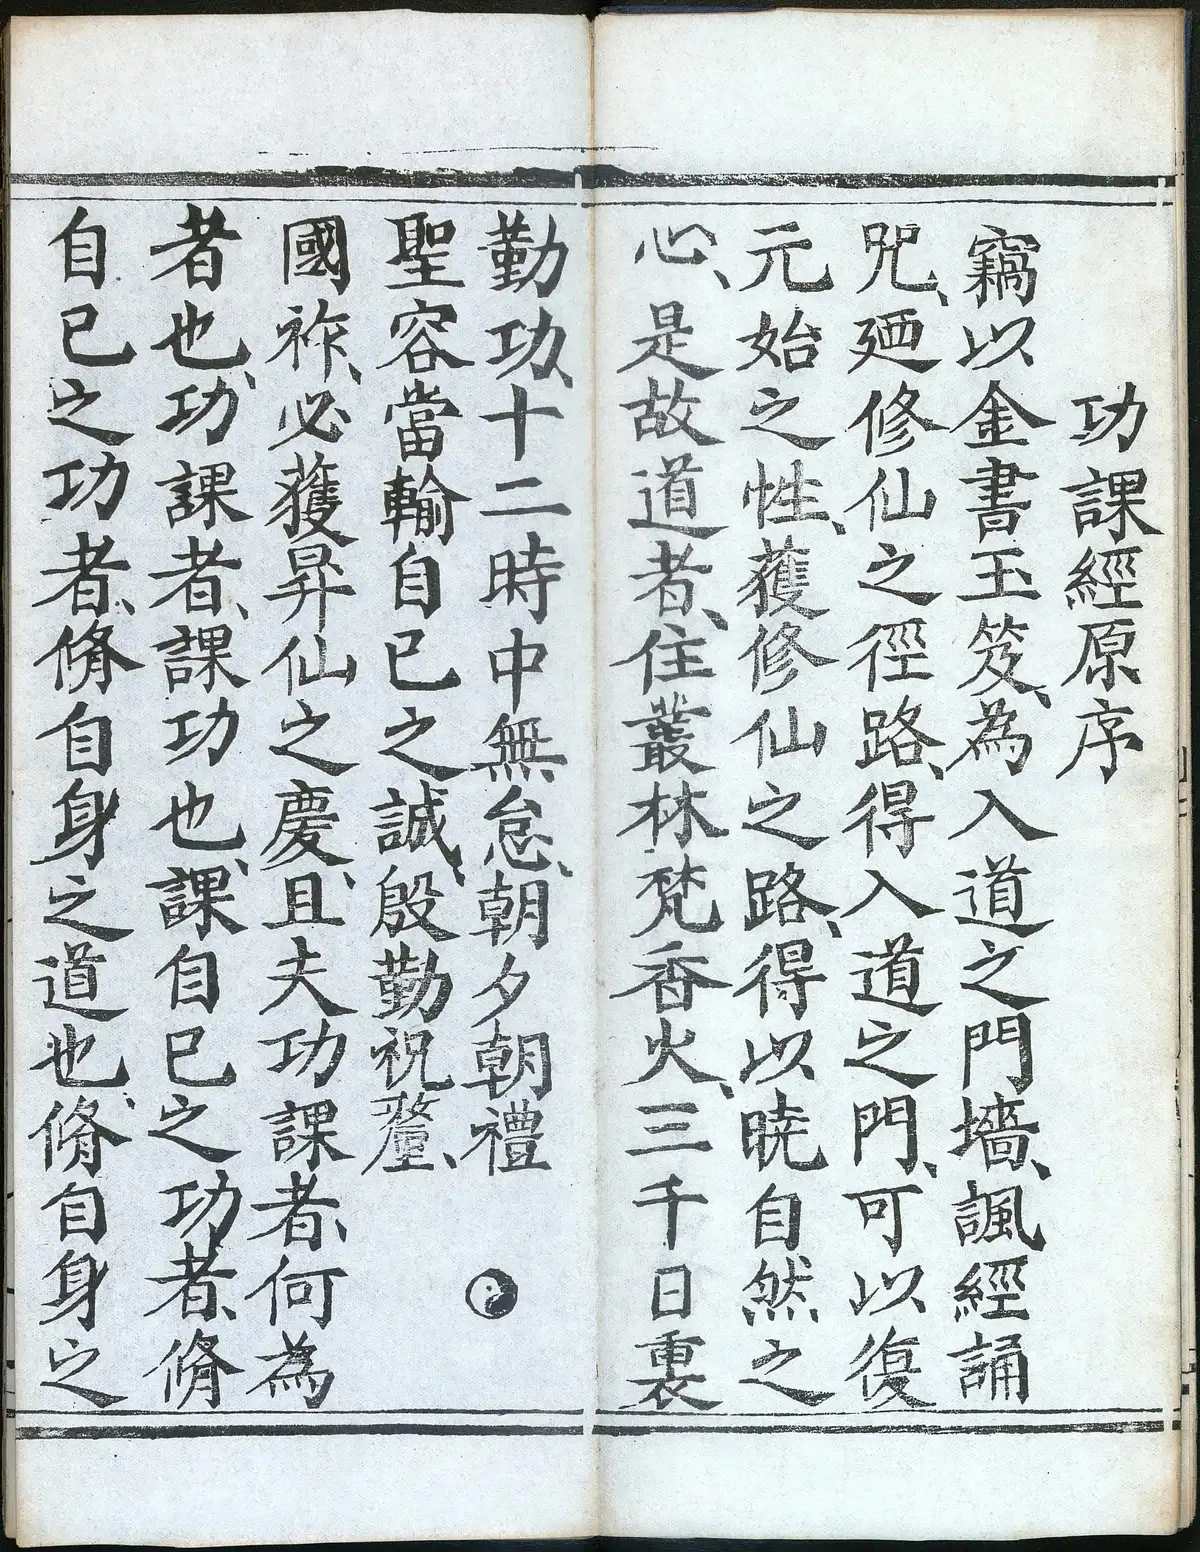 功課經原序
竊以金書玉笈、為入道之門墻、諷經誦
咒、廼修仙之徑路、得入道之門、可以復
元始之性、獲修仙之路、得以曉自然之
心、是故道者、住叢林梵香火、三千日裏
勤功、十二時中無怠、朝夕朝禮
聖容當輸自已之誠、殷勤祝釐、
國祚、必獲昇仙之慶、且夫功課者、何為
者也、功課者、課功也、課自已之功者、脩
自已之功者、脩自身之道也、脩自身之